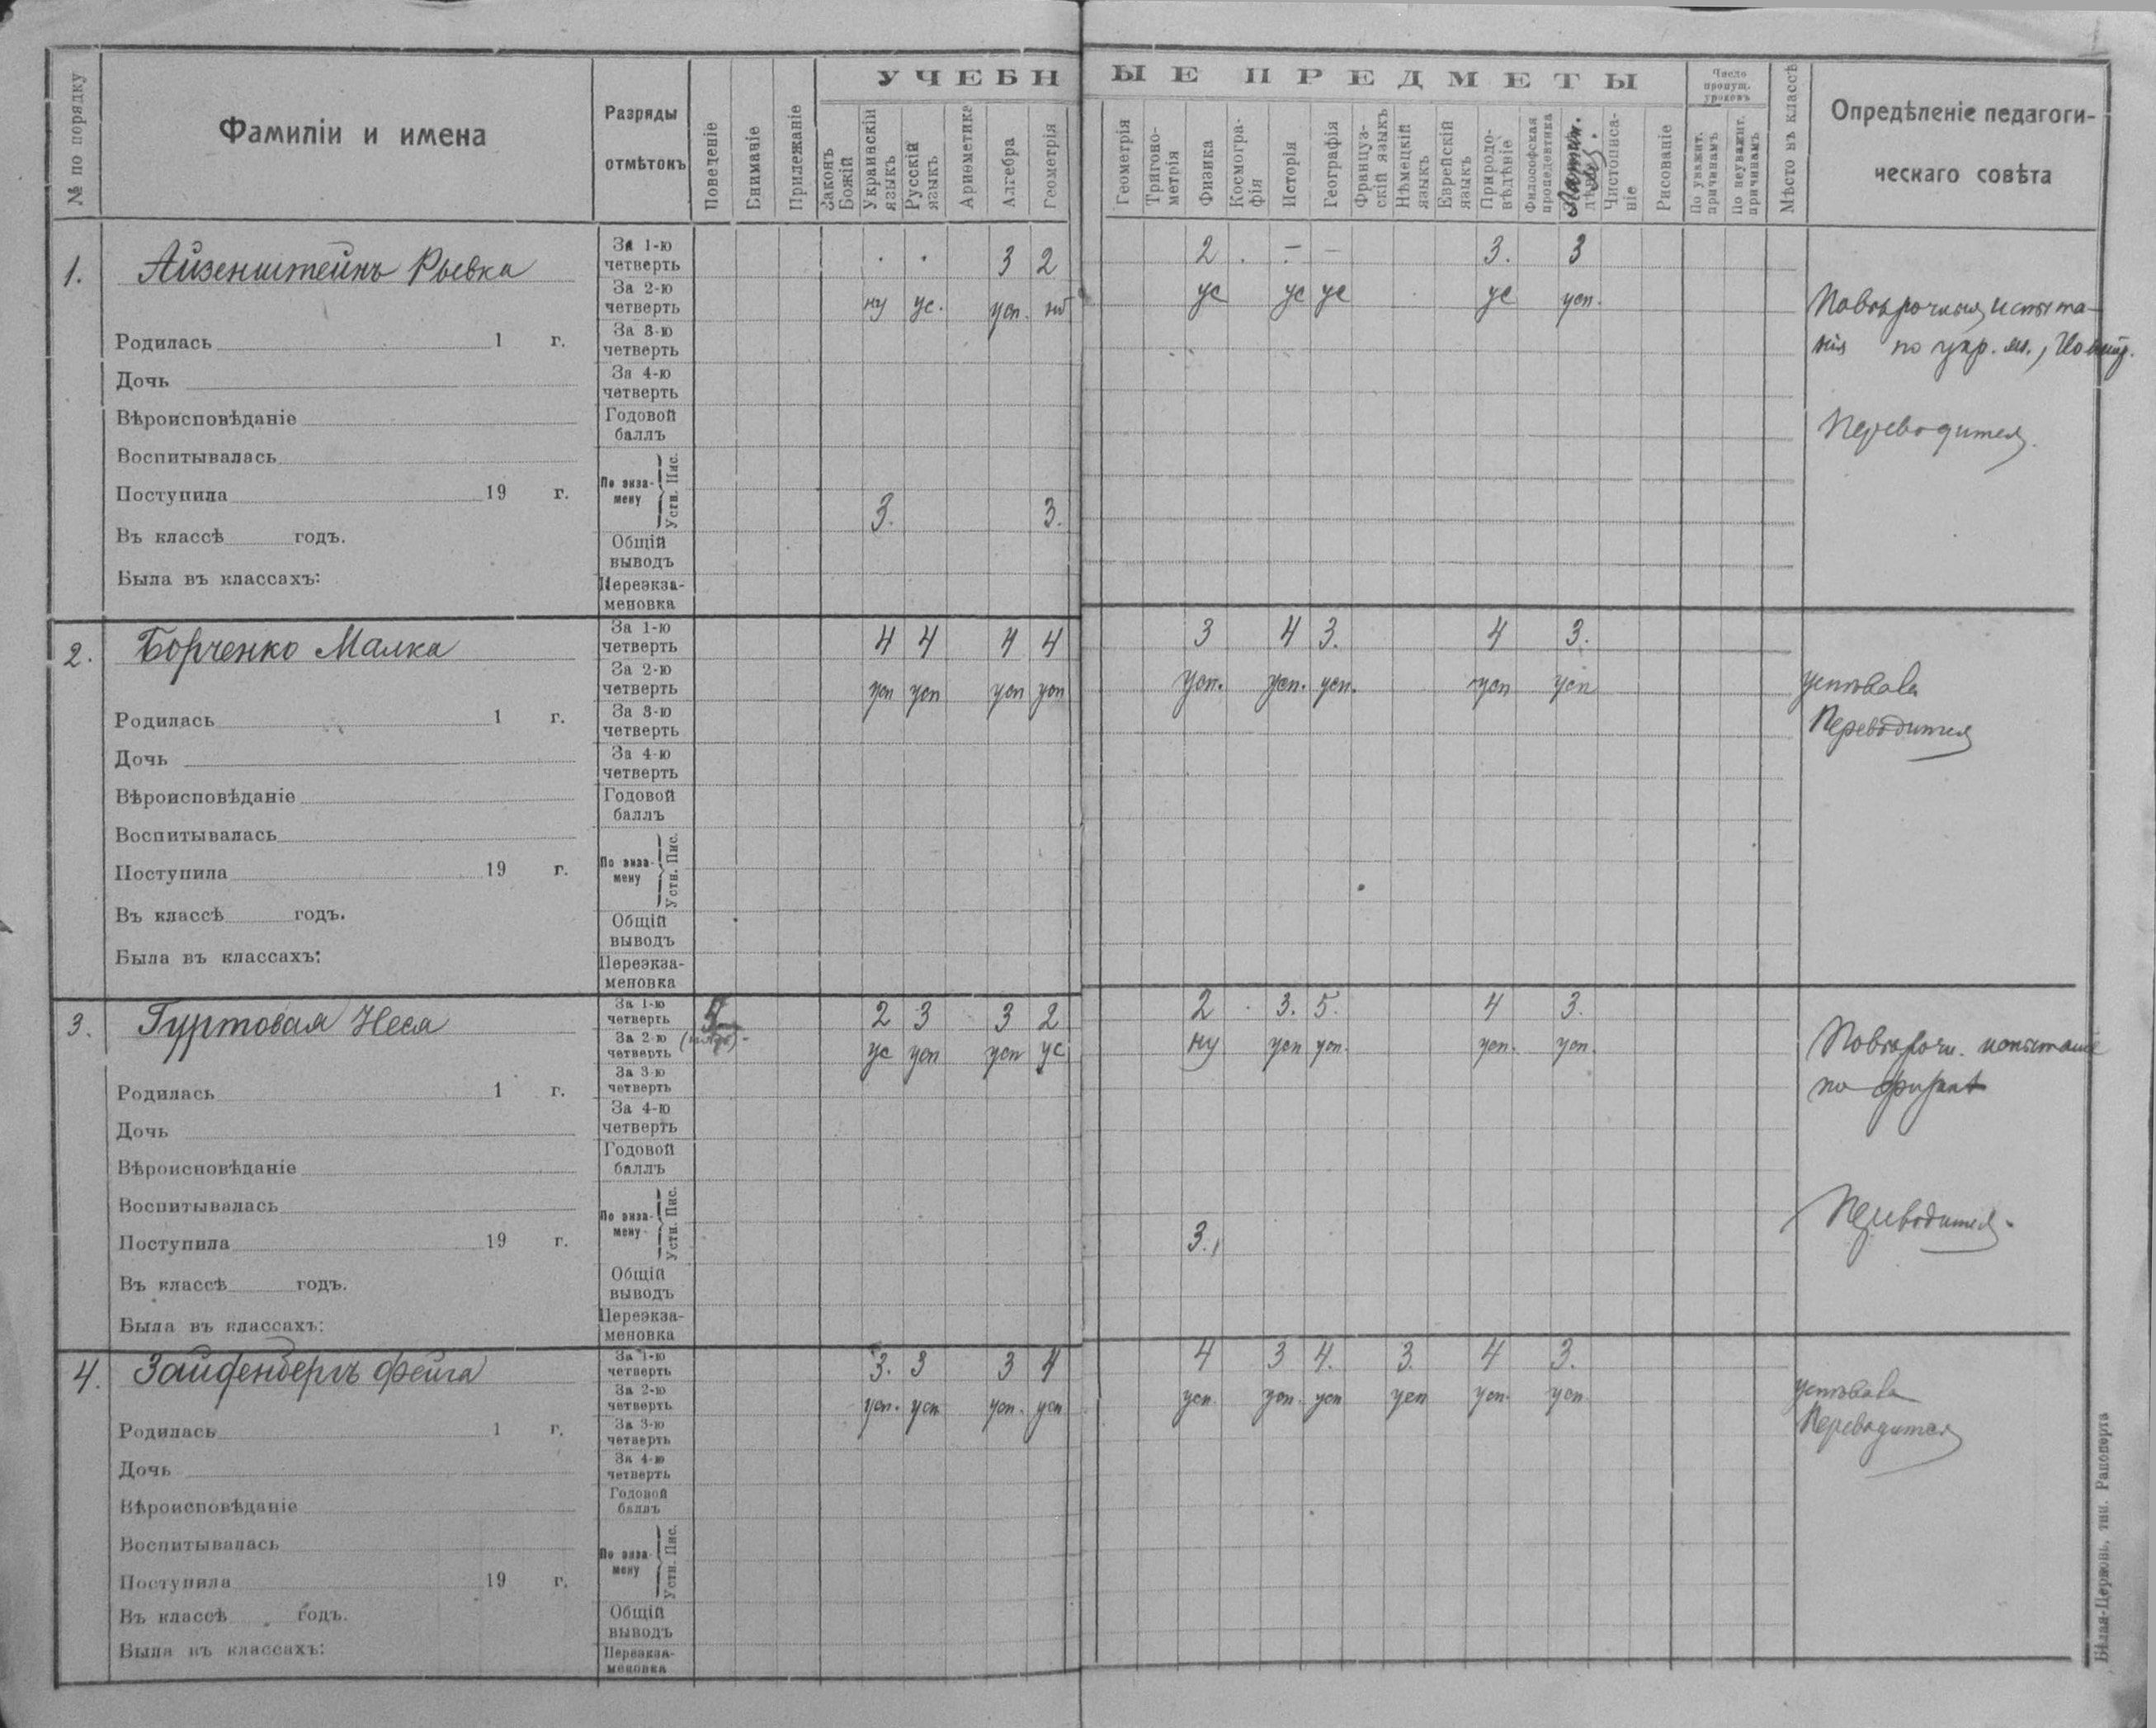 УЧЕБНЫЕ ПРЕДМЕТЫ
№ по порядку
Фамиліи и имена
Разряды
отмѣтокъ
Поведеніе
Вниманіе
Прилежаніе
Законъ
Божій
Украинскій
языкъ
Русскій
языкъ
Ариөметика
Алгебра
Геометрія
Геометрія
Тригоно-
метрія
Физика
Космогра-
фія
Исторія
Географія
Француз-
скій языкъ
Нѣмецкій
языкъ
Еврейскій
языкъ
Природо-
вѣдѣніе
Философская
пропедевтика
Латин.
Чистописа-
ніе
Рисованіе
Число
пропущ.
уроковъ
По уважит.
причинамъ
По неуважит.
причинамъ
Мѣсто въ классѣ
Опредѣленіе педагоги-
ческаго совѣта
1. Айзенштейнъ Рывка
Родилась 1 г.
Дочь
Вѣроисповѣданіе
Воспитывалась
Поступила 19 г.
Въ классѣ годъ.
Была въ классахъ:
За 1-ю
четверть
3 2 2 . - - 3. 3
За 2-ю
четверть
ну ус. усп. ус ус ус ус усп.
За 3-ю
четверть
За 4-ю
четверть
Годовой
баллъ
По экза-
мену
Устн. Пис.
3. 3.
Общій
выводъ
Переэкза-
меновка
Повѣрочныя испыта-
нія по укр. яз.,
Переводится.
2. Борченко Малка
Родилась 1 г.
Дочь
Вѣроисповѣданіе
Воспитывалась
Поступила 19 г.
Въ классѣ годъ.
Была въ классахъ:
За 1-ю
четверть
4 4 4 4 3 4 3. 4 3.
За 2-ю
четверть
усп усп усп усп усп. усп. усп. усп усп
За 3-ю
четверть
За 4-ю
четверть
Годовой
баллъ
По экза-
мену
Устн. Пис.
Общій
выводъ
Переэкза-
меновка
успѣвала
Переводится
3. Гуртовая Неся
Родилась 1 г.
Дочь
Вѣроисповѣданіе
Воспитывалась
Поступила 19 г.
Въ классѣ годъ.
Была въ классахъ:
За 1-ю
четверть
2 3 3 2 2 3. 5. 4 3.
За 2-ю
четверть
ус усп усп ус ну усп усп. усп. усп.
За 3-ю
четверть
За 4-ю
четверть
Годовой
баллъ
По экза-
мену
Устн. Пис.
3.
Общій
выводъ
Переэкза-
меновка
Повѣрочн. испытаніе
по физикѣ
Переводится.
4. Зайфенбергъ Фейга
Родилась 1 г.
Дочь
Вѣроисповѣданіе
Воспитывалась
Поступила 19 г.
Въ классѣ годъ.
Была въ классахъ:
За 1-ю
четверть
3. 3 3 4 4 3 4. 3. 4 3.
За 2-ю
четверть
усп. усп усп. усп усп. усп. усп усп усп. усп.
За 3-ю
четверть
За 4-ю
четверть
Годовой
баллъ
По экза-
мену
Устн. Пис.
Общій
выводъ
Переэкза-
меновка
успѣвала
Переводится
Бѣлая-Церковь, тип. Рапопорта